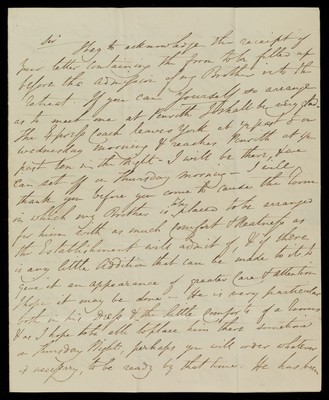 Sir I beg to acknowledge the receipt of
your letter containing the form to be filled up
before the admission of my Brother into the
Retreat. If you can yourself so arrange
as to meet me at Penrith I shall be very glad.
The Express Coach leaves York at 1/4 past 8 on
Wednesday morning & reaches Penrith at 1/4
past ten in the Night - I will be there, &
can set off on Thursday morning - I will
thank you before you come to cause the Room
in which my Brother is to be placed to be arranged
for him with as much comfort & Neatness as
the Establishment will admit of, & if there
is any little addition that can be made to it to
give it an appearance of greater Care & attention
I hope it may be done - He is very particular
both in his Dress & the little comforts of a Room
& as I hope to be able to place him there sometime
on Thursday Night, perhaps you will order whatever
is necessary, to be ready by that time. He has been